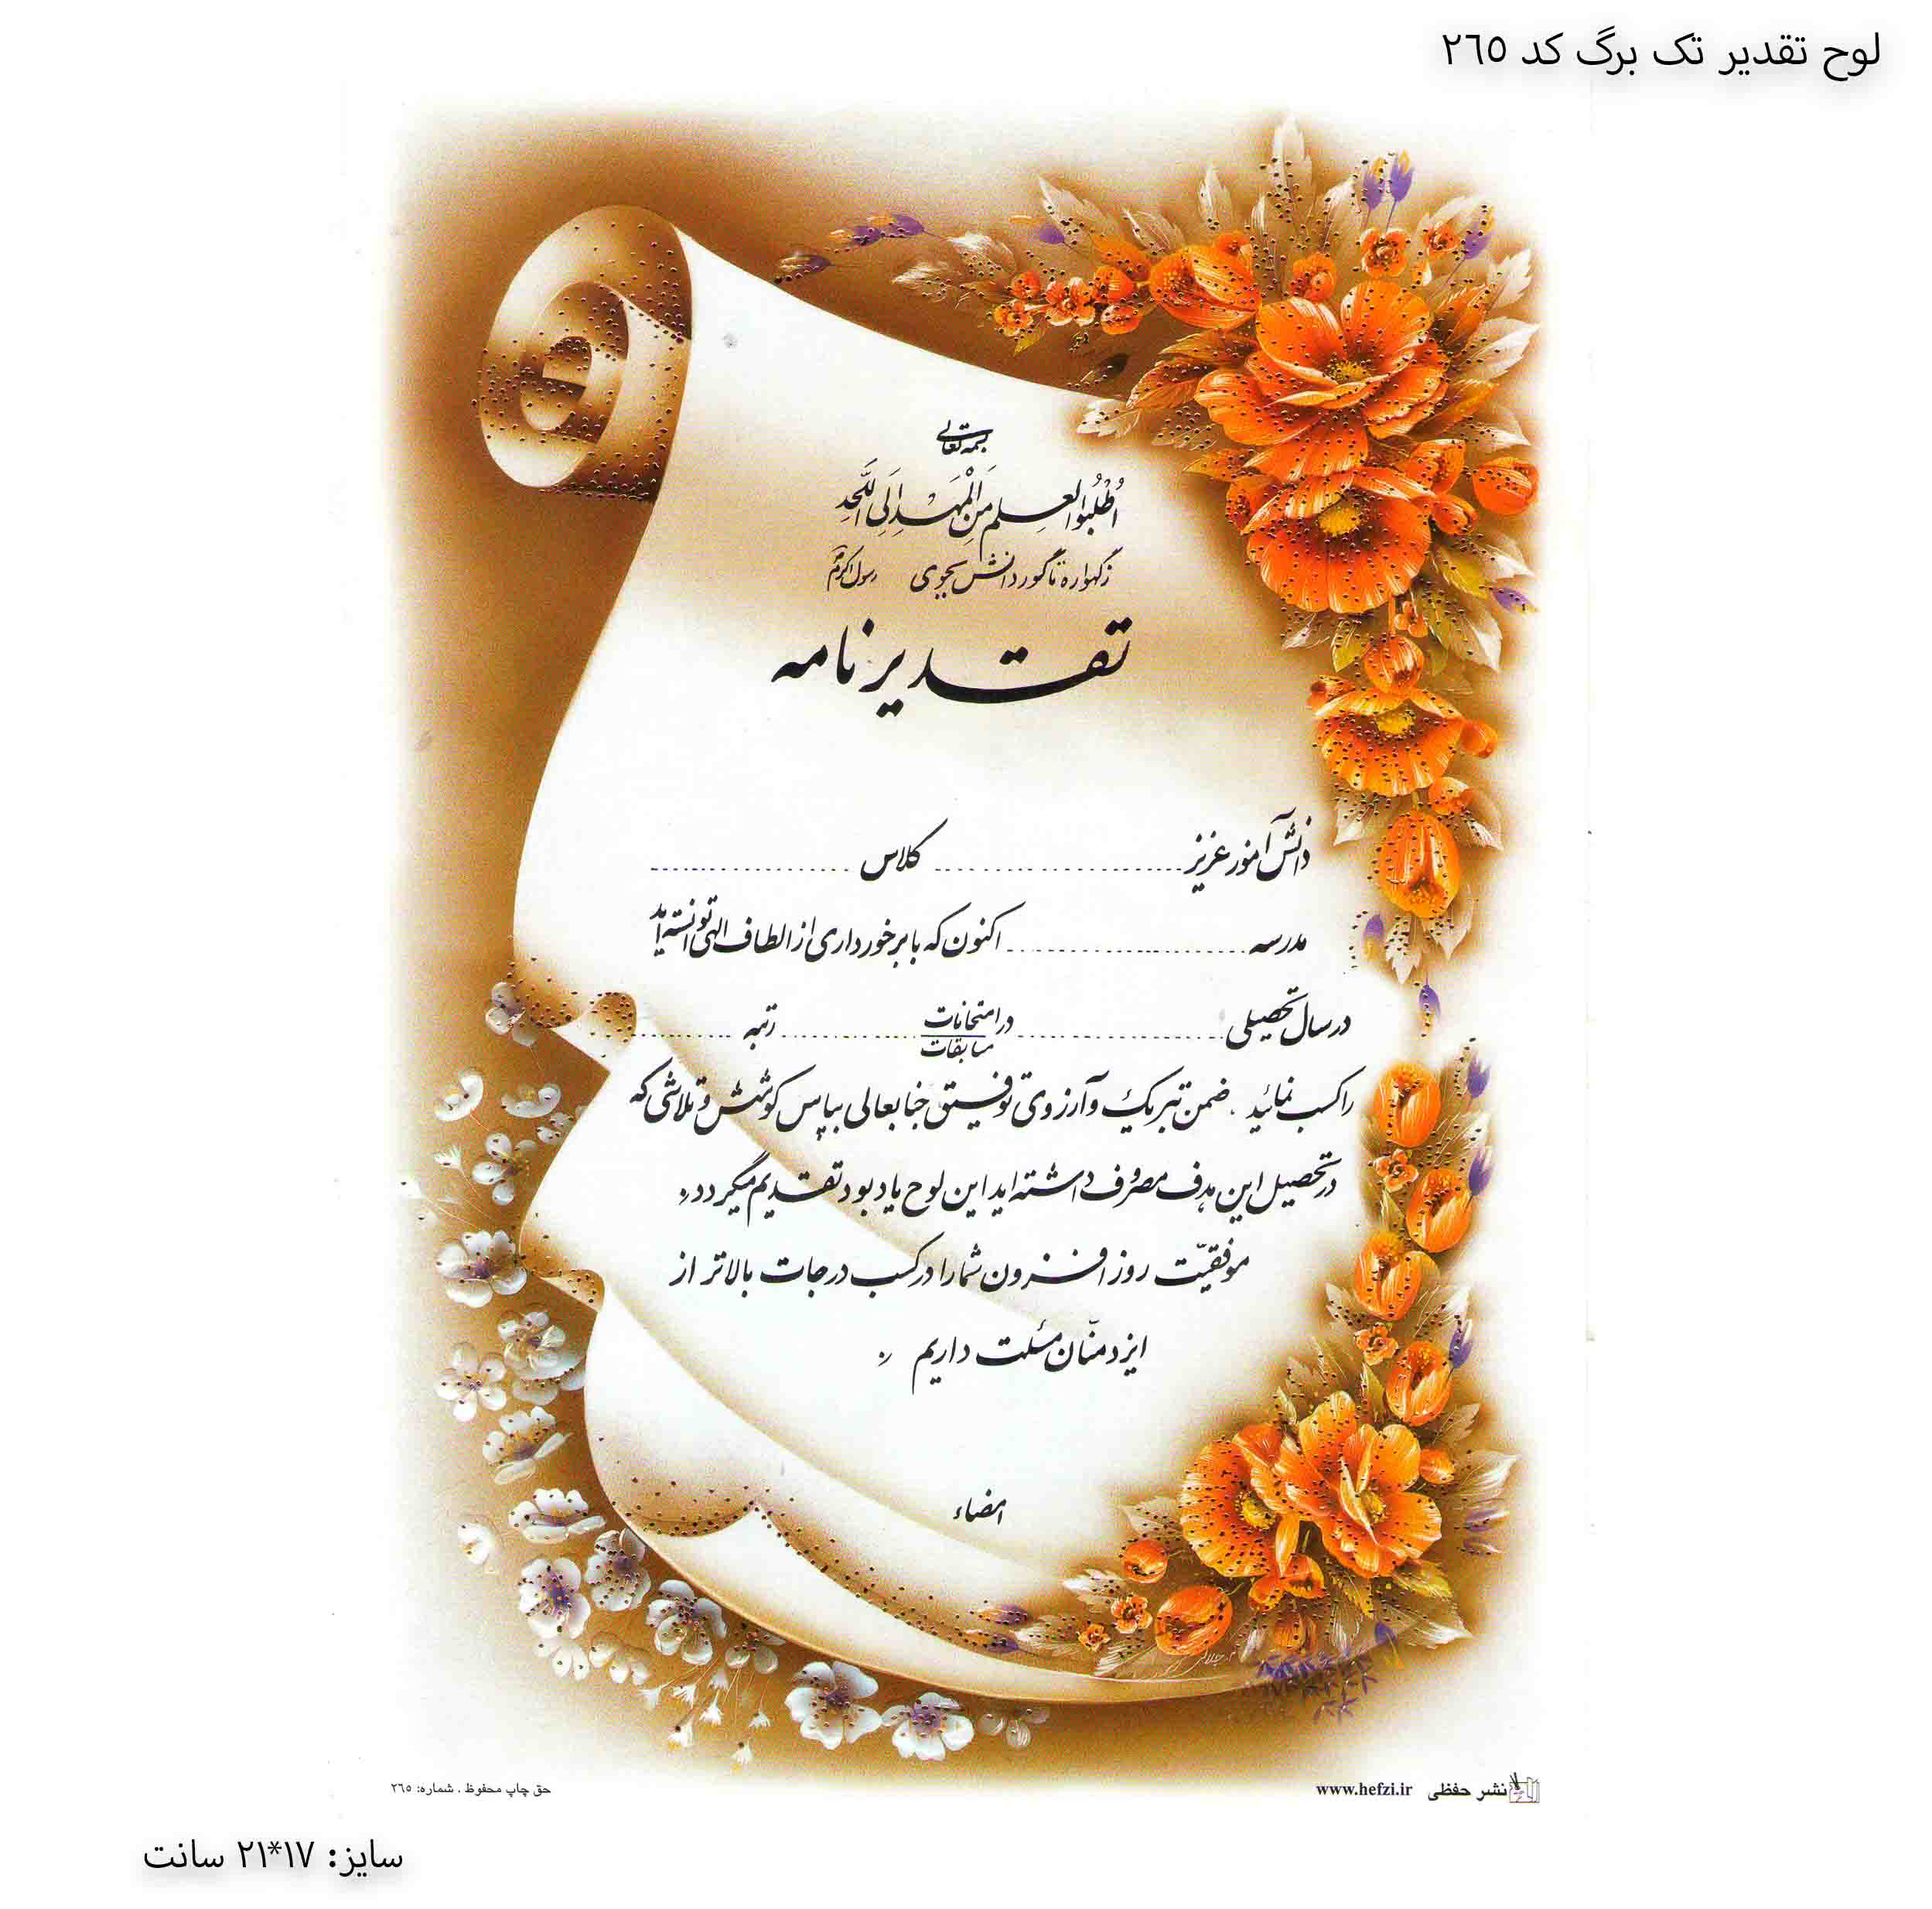 لوح تقدیر تک برگ کد ٢٦٥
بسمه تعالی
اُطْلُبُوا العِلمَ مِنَ الْمَهْدِ اِلَی اللَّحَدِ
ز گهواره تا گور دانش بجوی رسول اکرم
تقدیرنامه
دانش آموز عزیز ........ کلاس ........
مدرسه ........ اکنون که با برخورداری از الطاف الهی توانسته اید
در سال تحصیلی ........ در امتحانات ........ رتبه ........
مسابقات
را کسب نمائید . ضمن تبریک و آرزوی توفیق جنابعالی بپاس کوشش و تلاشی که
در تحصیل این هدف مصروف داشته اید این لوح یادبود تقدیم میگردد
موفقیّت روز افزون شما را در کسب درجات بالاتر از
ایزد منّان مسئلت داریم
امضاء
م. جلالی
نشر حفظی www.hefzi.ir
حق چاپ محفوظ . شماره: ٢٦٥
سایز: ١٧*٢١ سانت